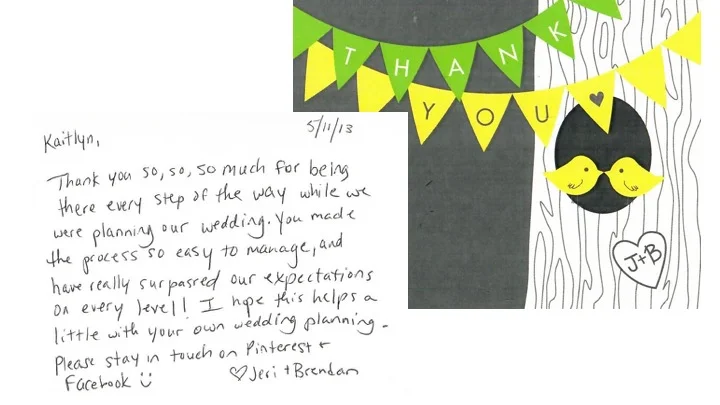 THANK
YOU
J+B
5/11/13
Kaitlyn,
Thank you so, so, so much for being
there every step of the way while we
were planning our wedding. You made
the process so easy to manage, and
have really surpassed our expectations
on every level! I hope this helps a
little with your own wedding planning.
Please stay in touch on Pinterest +
Facebook
Jeri + Brendan